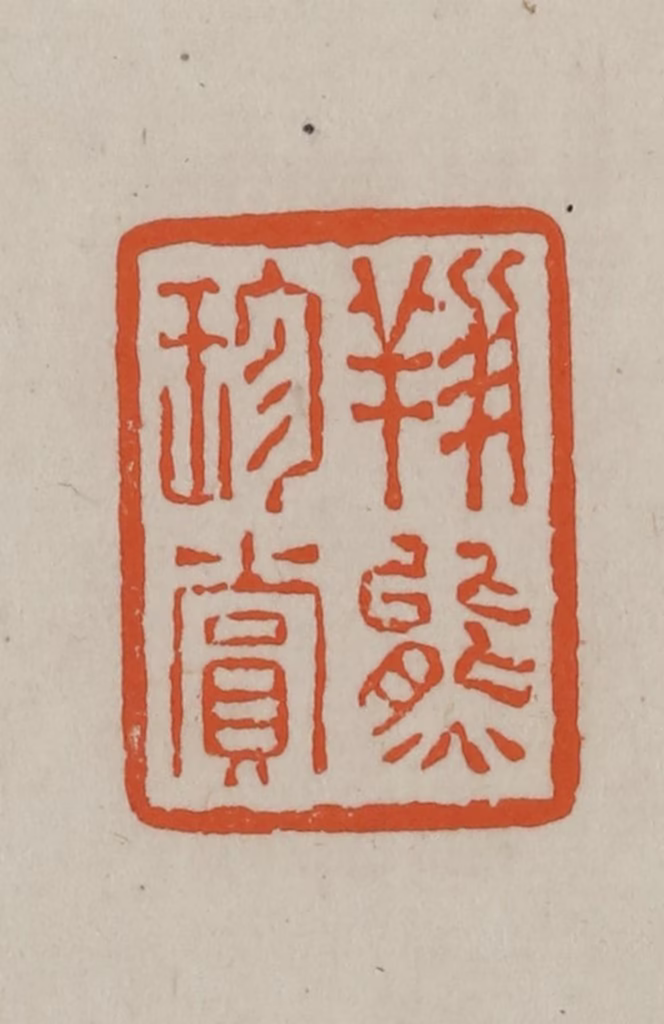 翔熊
珍賞